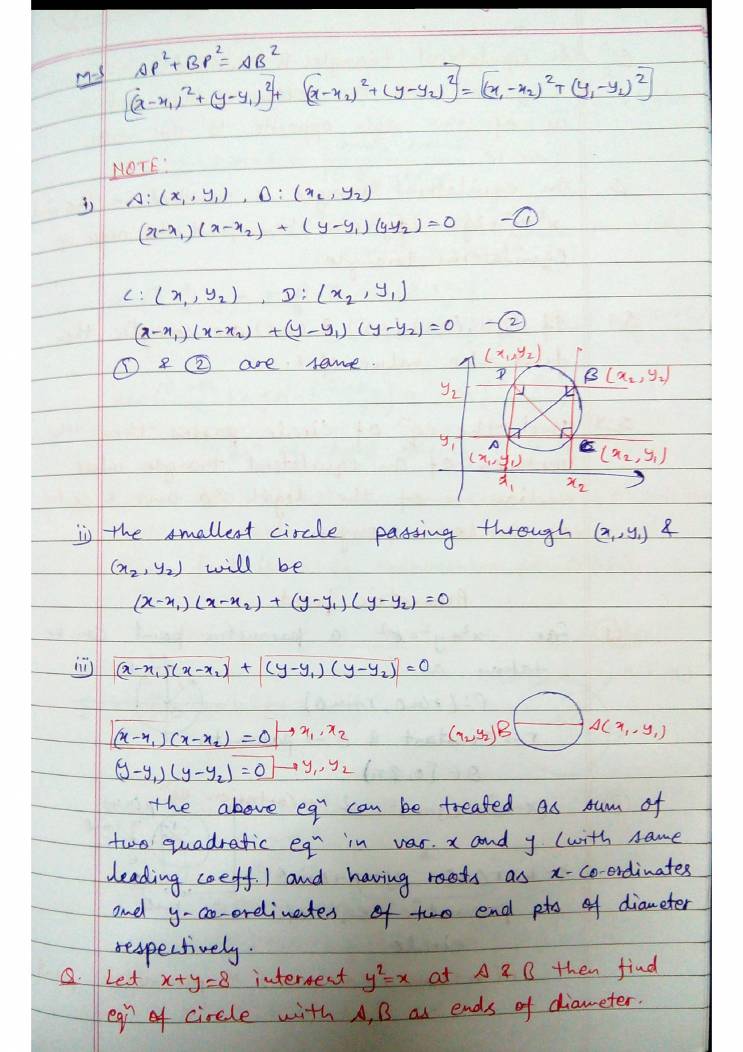 M-3 AP² + BP² = AB²
[(x-x₁)² + (y-y₁)²] + [(x-x₂)² + (y-y₂)²] = [(x₁-x₂)² + (y₁-y₂)²]
NOTE:
i) A: (x₁, y₁), B: (x₂, y₂)
(x-x₁)(x-x₂) + (y-y₁)(y-y₂) = 0 -①
C: (x₁, y₂), D: (x₂, y₁)
(x-x₁)(x-x₂) + (y-y₁)(y-y₂) = 0 -②
① & ② are same.
(x₁, y₂)
D
B (x₂, y₂)
y₂
y₁
A
C (x₂, y₁)
(x₁, y₁)
x₁
x₂
ii) The smallest circle passing through (x₁, y₁) &
(x₂, y₂) will be
(x-x₁)(x-x₂) + (y-y₁)(y-y₂) = 0
iii) (x-x₁)(x-x₂) + (y-y₁)(y-y₂) = 0
(x-x₁)(x-x₂) = 0 → x₁, x₂
(x₂, y₂) B
A (x₁, y₁)
(y-y₁)(y-y₂) = 0 → y₁, y₂
The above eqⁿ can be treated as sum of
two quadratic eqⁿ in var. x and y (with same
leading coeff.) and having roots as x-co-ordinates
and y-co-ordinates of two end pts of diameter
respectively.
Q. Let x+y=8 intersect y²=x at A & B then find
eqⁿ of circle with A, B as ends of diameter.